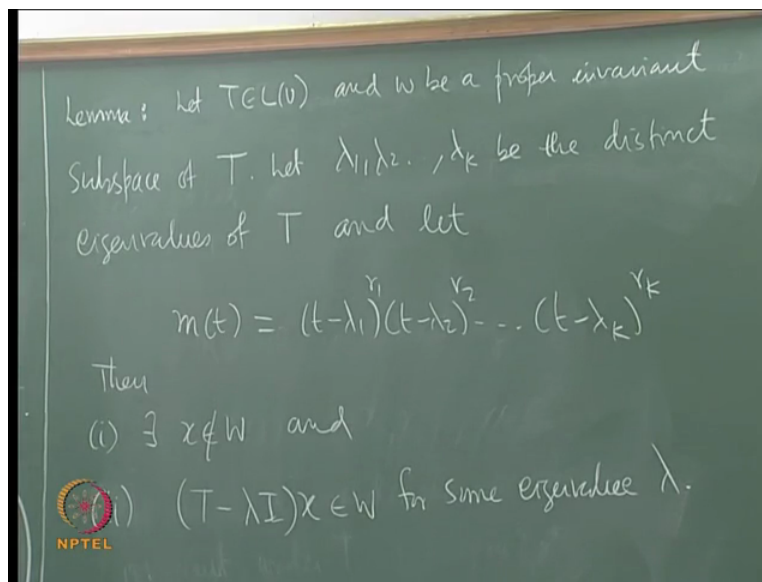 Lemma: Let T∈L(V) and W be a proper invariant
Subspace of T. Let λ₁,λ₂..,λₖ be the distinct
eigenvalues of T and let
m(t) = (t-λ₁)^{r₁}(t-λ₂)^{r₂}-... (t-λₖ)^{rₖ}
Then
(i) ∃ x∉W and
(ii) (T-λI)x ∈ W for some eigenvalue λ.
NPTEL